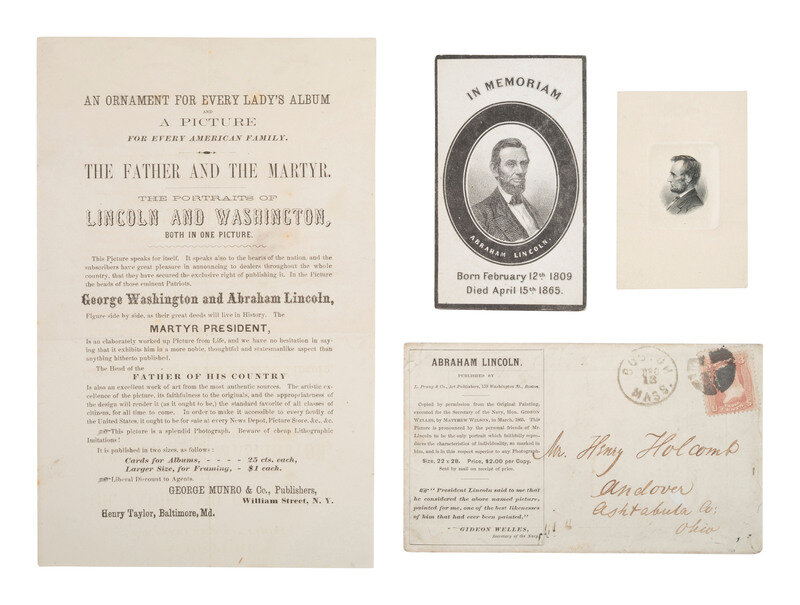 AN ORNAMENT FOR EVERY LADY'S ALBUM
AND
A PICTURE
FOR EVERY AMERICAN FAMILY.
THE FATHER AND THE MARTYR.
THE PORTRAITS OF
LINCOLN AND WASHINGTON,
BOTH IN ONE PICTURE.
This Picture speaks for itself. It speaks also to the hearts of the nation, and the
subscribers have great pleasure in announcing to dealers throughout the whole
country, that they have secured the exclusive right of publishing it. In the Picture
the heads of those eminent Patriots,
George Washington and Abraham Lincoln,
Figure side by side, as their great deeds will live in History. The
MARTYR PRESIDENT,
Is an elaborately worked up Picture from Life, and we have no hesitation in say-
ing that it exhibits him in a more noble, thoughtful and statesmanlike aspect than
anything hitherto published.
The Head of the
FATHER OF HIS COUNTRY
Is also an excellent work of art from the most authentic sources. The artistic ex-
cellence of the picture, its faithfulness to the originals, and the appropriateness of
the design will render it (as it ought to be,) the standard favorite of all classes of
citizens, for all time to come. In order to make it accessible to every family of
the United States, it ought to be for sale at every News Depot, Picture Store, &c., &c.
This picture is a splendid Photograph. Beware of cheap Lithographic
Imitations!
It is published in two sizes, as follows:
Cards for Albums, - - - - 25 cts. each,
Larger Size, for Framing, - $1 each.
Liberal Discount to Agents.
GEORGE MUNRO & Co., Publishers,
William Street, N. Y.
Henry Taylor, Baltimore, Md.
IN MEMORIAM
ABRAHAM LINCOLN.
Born February 12th 1809
Died April 15th 1865.
ABRAHAM LINCOLN.
PUBLISHED BY
L. Prang & Co., Art Publishers, 159 Washington St., Boston.
Copied by permission from the Original Painting,
executed for the Secretary of the Navy, Hon. GIDEON
WELLES, by MATTHEW WILSON, in March, 1865. This
Picture is pronounced by the personal friends of Mr.
Lincoln to be the only portrait which faithfully repro-
duces the characteristics of individuality, so marked in
him, and is in this respect superior to any Photograph.
Size, 22 x 28. Price, $2.00 per Copy.
Sent by mail on receipt of price.
"President Lincoln said to me that
he considered the above named picture,
painted for me, one of the best likenesses
of him that had ever been painted."
GIDEON WELLES,
Secretary of the Navy.
BOSTON
13
MASS.
Mr. Henry Holcomb
Andover
Ashtabula Co.
Ohio